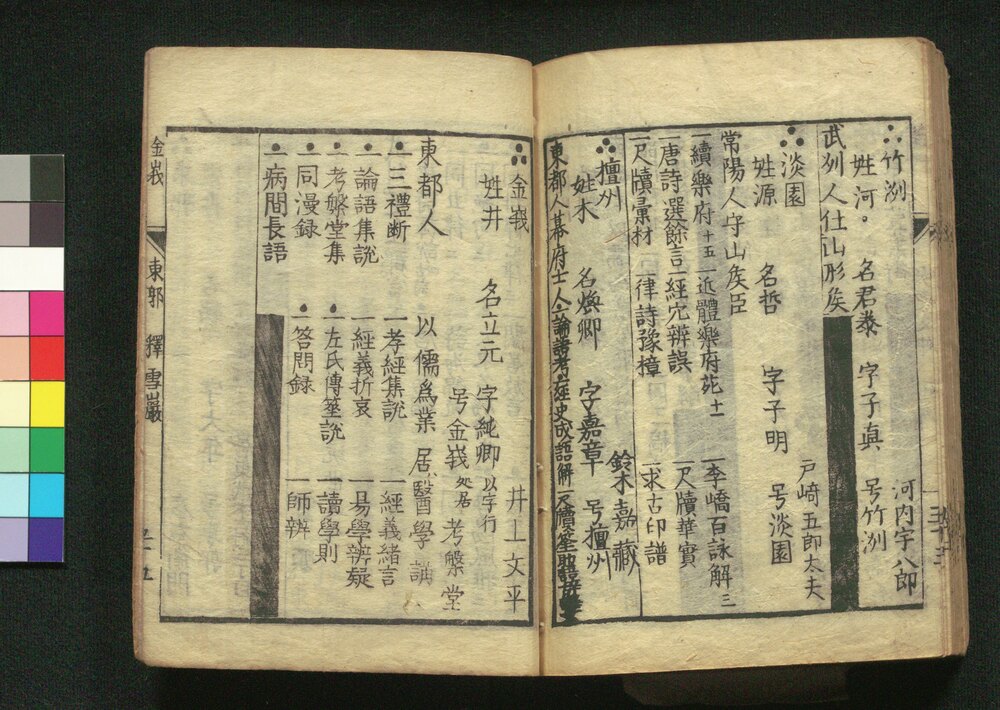 竹冽
姓河 名君泰 字子真 号竹冽 河内宇八郎
武刕人仕山形矦
淡園
姓源 名哲 字子明 号淡園 戸﨑五郎太夫
常陽人守山矦臣
一續樂府十五 一近體樂府 十一 一李嶠百詠解三
一唐詩選餘言 一經穴辨誤 一尺牘華實
一尺牘彙材 一律詩豫樟 一求古印譜
檀州 鈴木嘉藏
姓木 名煥卿 字嘉章 号檀州
東都人幕府士人 論語考 經史成語解 尺牘筌
金峩 井上文平
姓井 名立元 字純卿以字行
号金峩処居考槃堂
東都人 以儒爲業 居醫學講
一三禮断 一孝經集説 一經義緒言
一論語集説 一經義折衷 一易學辨疑
一考槃堂集 一左氏傳筌説 一讀學則
一同漫録 一答問録 一師辨
一病間長語
金峩 東郭 釋雪巖